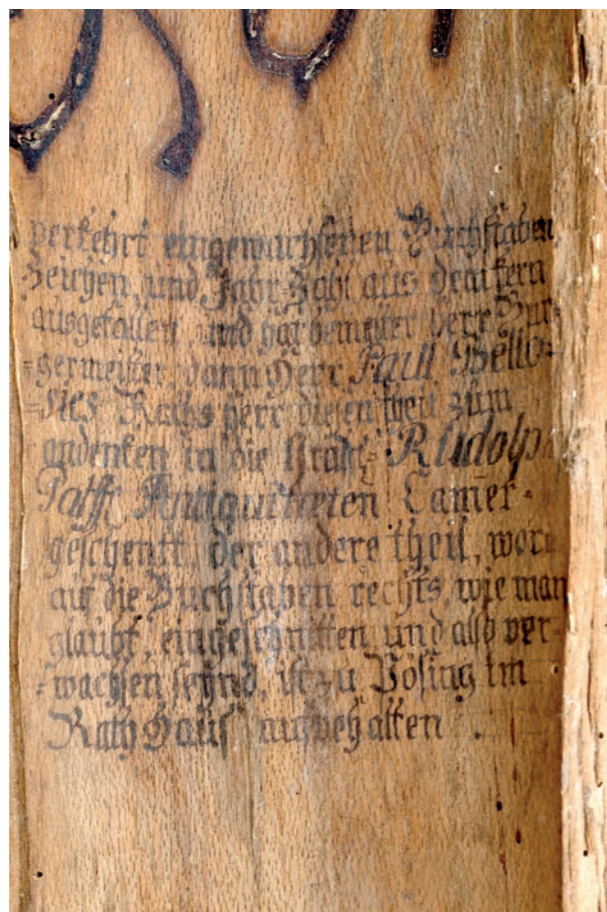 verkehrt eingewachsenen Buchstaben,
Zeichen, und Jahr Zahl aus dem kern
ausgefallen und hat gemelter Herr Bur=
=germeister, dann Herr Paull Bello=
=sics Raths herr diesen theil zum
andenken in die Gräffl: Rudolph
Palffi Antiquiteten Camer=
geschenkt, der andere theil, wor
auf die Buchstaben rechts, wie man
glaubt, eingeschnitten und also ver=
=wachsen seynd, ist zu Pösing im
Rath Haus aufbehalten